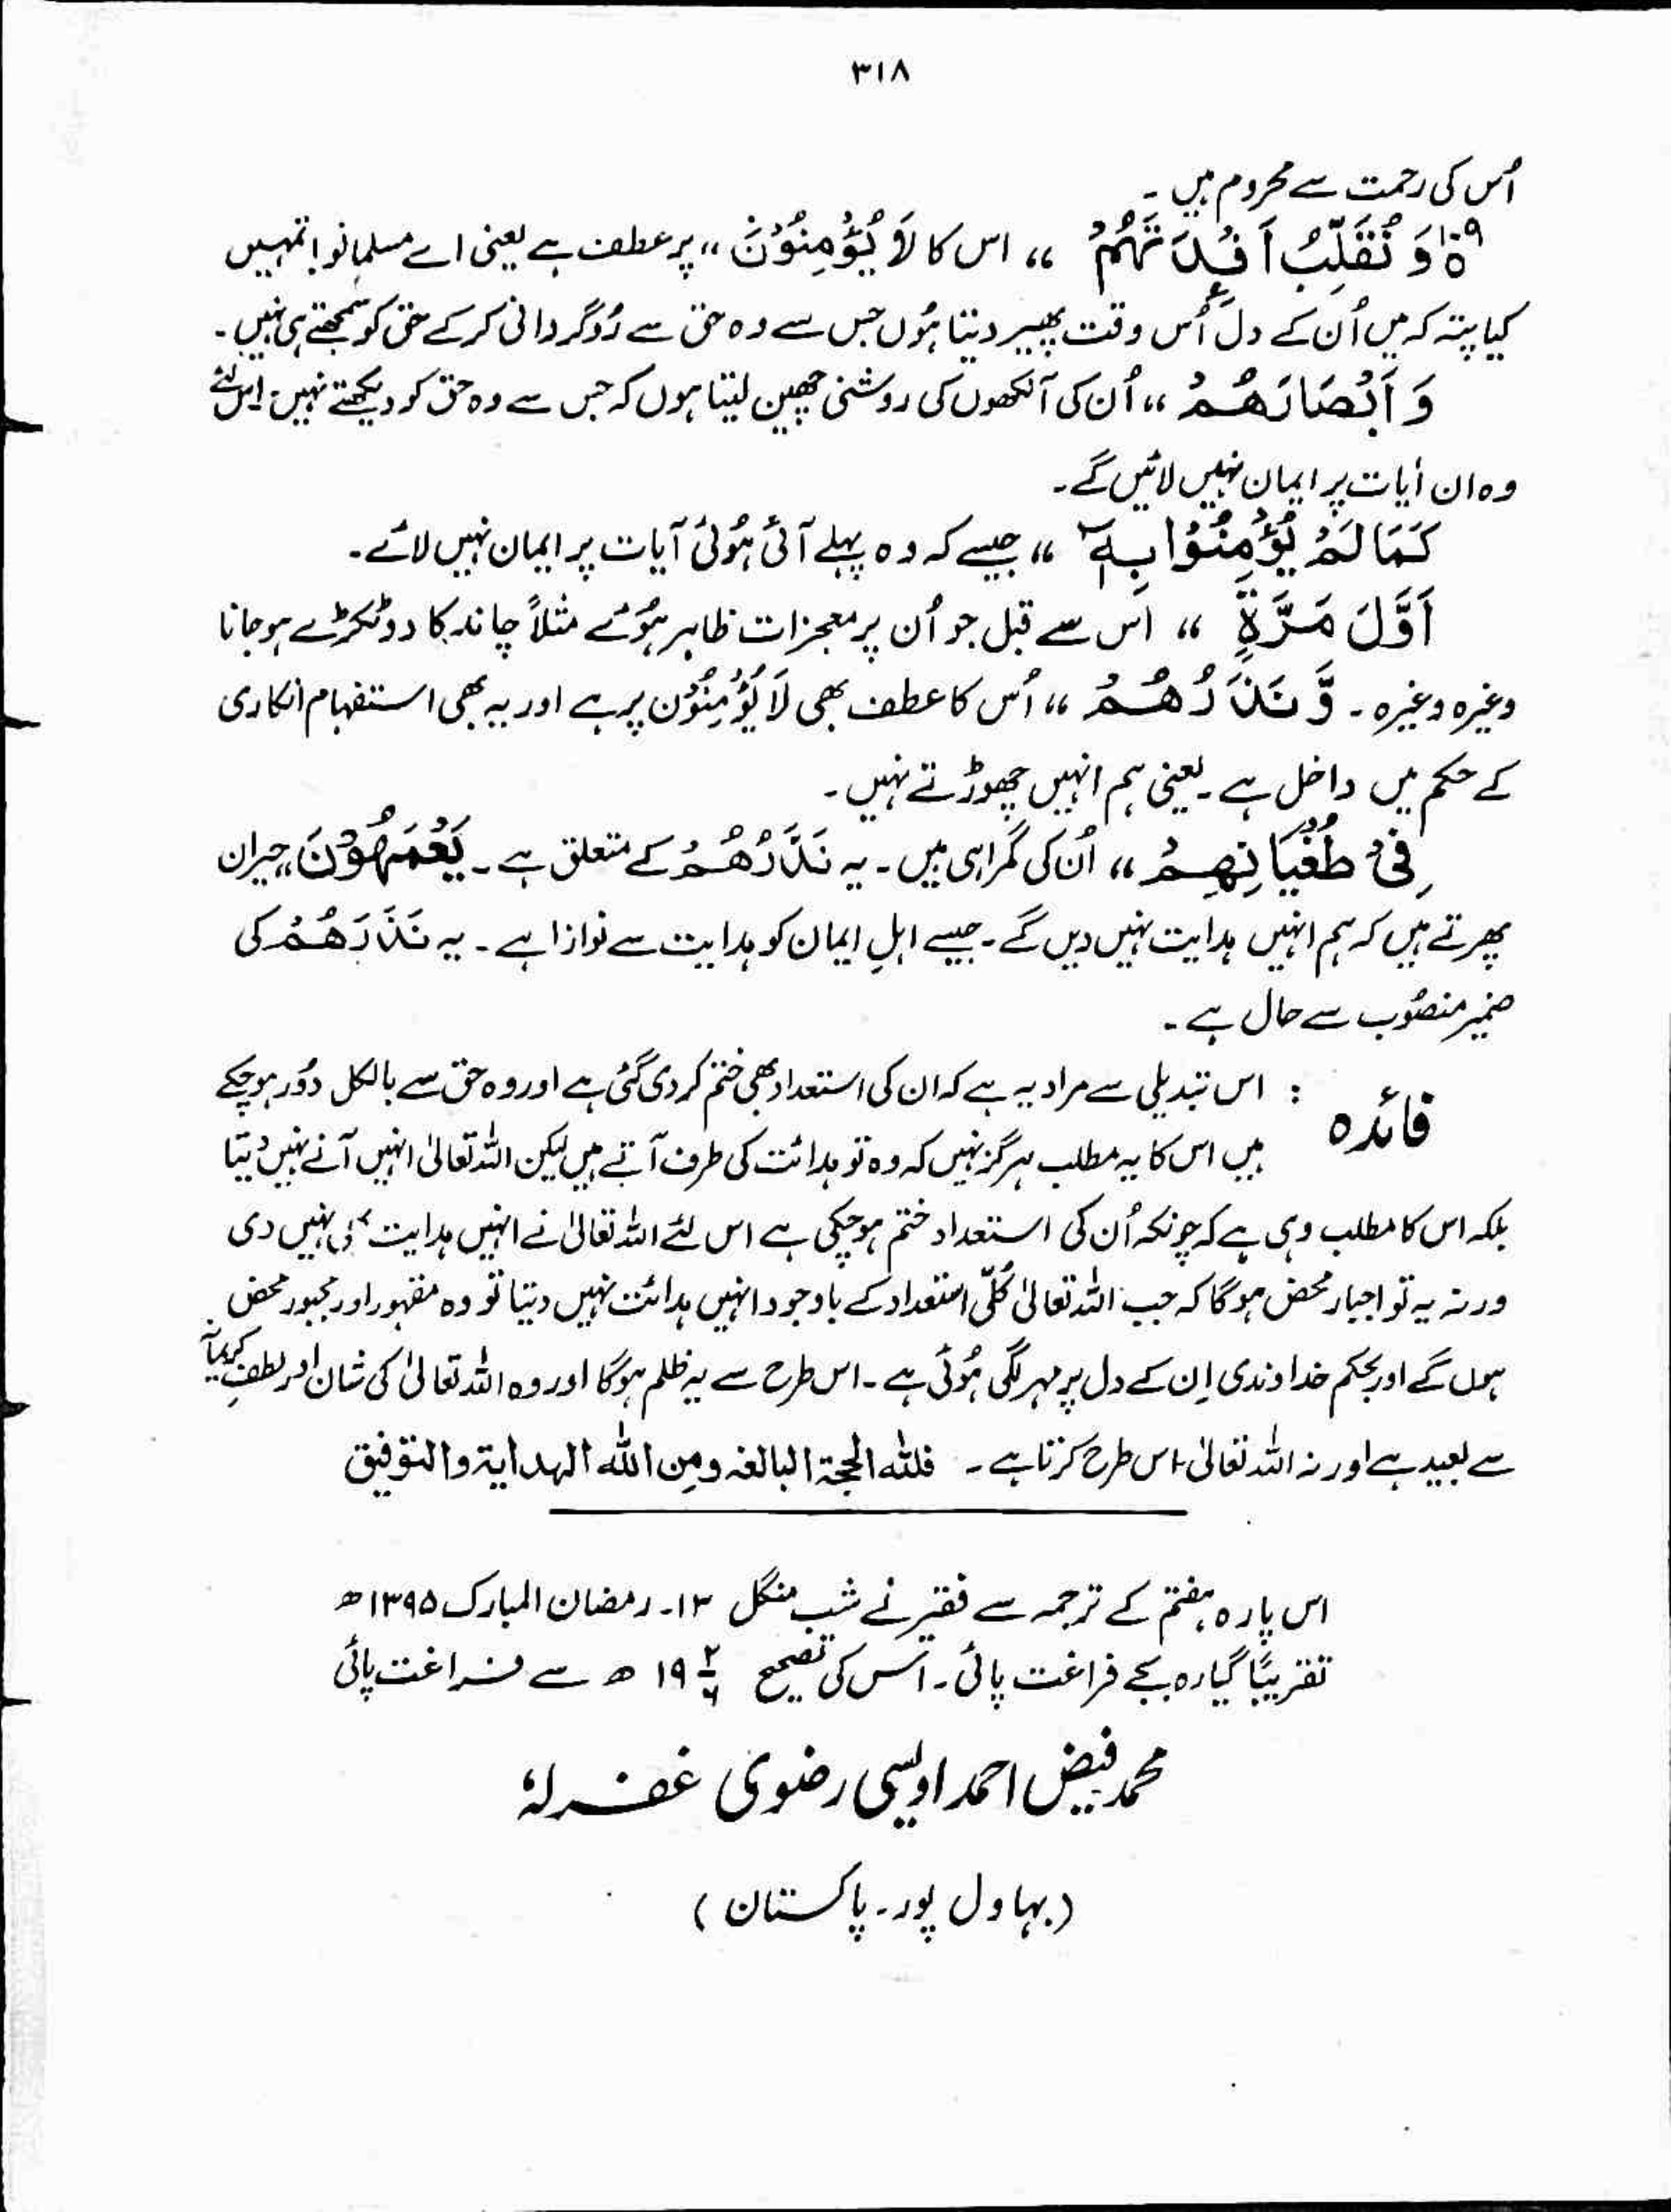 ۳۱۸
اُس کی رحمت سے محروم ہیں ۔
وَ نُقَلِّبُ اَفْئِدَتَهُمْ ،، اس کا لَا یُؤْمِنُوْنَ ،، پر عطف ہے یعنی اے مسلمانو! تمہیں
کیا پتہ کہ میں اُن کے دل اُس وقت پھیر دیتا ہُوں جس سے وہ حق سے رُوگردانی کر کے حق کو سمجھتے ہی نہیں ۔
وَ اَبْصَارَهُمْ ،، اُن کی آنکھوں کی روشنی چھین لیتا ہوں کہ جس سے وہ حق کو دیکھتے نہیں، اس لئے
وہ ان آیات پر ایمان نہیں لائیں گے ۔
كَمَا لَمْ يُؤْمِنُوْا بِهٖٓ ،، جیسے کہ وہ پہلے آئی ہُوئی آیات پر ایمان نہیں لائے ۔
اَوَّلَ مَرَّةٍ ،، اس سے قبل جو اُن پر معجزات ظاہر ہُوئے مثلاً چاند کا دو ٹکڑے ہو جانا
وغیرہ وغیرہ ۔ وَّ نَذَرُهُمْ ،، اُس کا عطف بھی لَا یُؤْمِنُوْن پر ہے اور یہ بھی استفہام انکاری
کے حکم میں داخل ہے ۔ یعنی ہم انہیں چھوڑتے نہیں ۔
فِیْ طُغْیَانِهِمْ ،، اُن کی گمراہی میں ۔ یہ نَذَرُهُمْ کے متعلق ہے ۔ یَعْمَهُوْنَ ،، حیران
پھرتے ہیں کہ ہم انہیں ہدایت نہیں دیں گے ۔ جیسے اہلِ ایمان کو ہدایت سے نوازا ہے ۔ یہ نَذَرَهُمْ کی
ضمیر منصُوب سے حال ہے ۔
فائدہ : اس تبدیلی سے مراد یہ ہے کہ ان کی استعداد بھی ختم کر دی گئی ہے اور وہ حق سے بالکل دُور ہو چکے
ہیں اس کا یہ مطلب ہرگز نہیں کہ وہ تو ہدائت کی طرف آتے ہیں لیکن اللہ تعالیٰ انہیں آنے نہیں دیتا
بلکہ اس کا مطلب وہی ہے کہ چونکہ اُن کی استعداد ختم ہو چکی ہے اس لئے اللہ تعالیٰ نے انہیں ہدایت ہی نہیں دی
ورنہ یہ تو اجبار محض ہوگا کہ جب اللہ تعالیٰ کُلّی استعداد کے باوجود انہیں ہدائت نہیں دیتا تو وہ مقہور اور مجبور محض
ہوں گے اور بحکم خداوندی اِن کے دل پر مہر لگی ہُوئی ہے ۔ اس طرح سے یہ ظلم ہوگا اور وہ اللہ تعالیٰ کی شان اور لطفِ
سے بعید ہے اور نہ اللہ تعالیٰ اس طرح کرتا ہے ۔ فللّٰہ الحجۃ البالغہ ومن اللّٰہ الھدایۃ والتوفیق
اس پارہ ہفتم کے ترجمہ سے فقیر نے شب منگل ۱۳۔ رمضان المبارک ۱۳۹۵ھ
تقریبًا گیارہ بجے فراغت پائی ۔ اس کی تصحیح ھ سے فراغت پائی
محمد فیض احمد اویسی رضوی غفرلہٗ
(بہاول پور ۔ پاکستان)